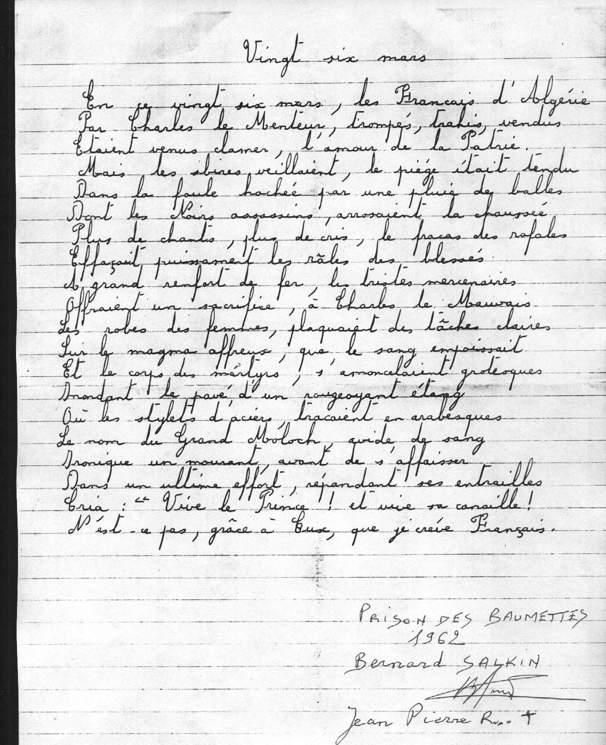 Vingt six mars
En ce vingt six mars, les Francais d'Algérie
Par Charles le Menteur, trompés, trahis, vendus
Etaient venus clamer, l'amour de la Patrie.
Mais les sbires veillaient, le piége était tendu
Dans la foule hachée par une pluie de balles
Dont les Noirs assassins, arrosaient la chaussée
Plus de chants, plus de cris, le fracas des rafales
Effaçait puissamment les râles des blessés.
A grand renfort de fer, les tristes mercenaires
Offraient un sacrifice, à Charles le Mauvais.
Les robes des femmes, plaquaient des tâches claires
Sur le magma affreux, que le sang empoissait
Et le corps des mártyrs, s'amoncelaient grotesques
Inondant le pavé, d'un rougeoyant étang
Où les stylets d'aciers, traçaient en arabesques
Le nom du Grand Moloch, avide de sang
Ironique un mourant, avant de s'affaisser
Dans un ultime effort, repandant ses entrailles
Cria : " Vive le Prince ! et vive sa canaille !
N'est-ce pas, grâce à Eux, que je créve Français.
PRISON DES BAUMETTES
1962
Bernard SALKIN
Jean Pierre R... +